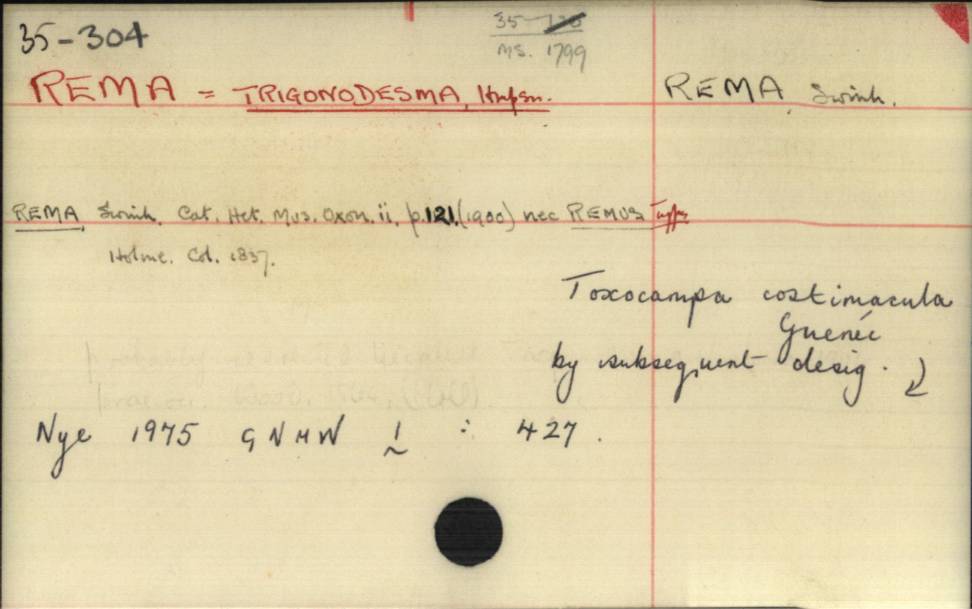 35-304
35-
MS. 1799
REMA = TRIGONODESMA, Hmpsn.
REMA, Swinh.
REMA Swinh. Cat. Het. Mus. Oxon. ii, p.121.(1900) nec REMUS
Holme. Col. 1837.
Toxocampa costimacula
Guenée
by subsequent desig.
Nye 1975 GNMW 1 : 427.